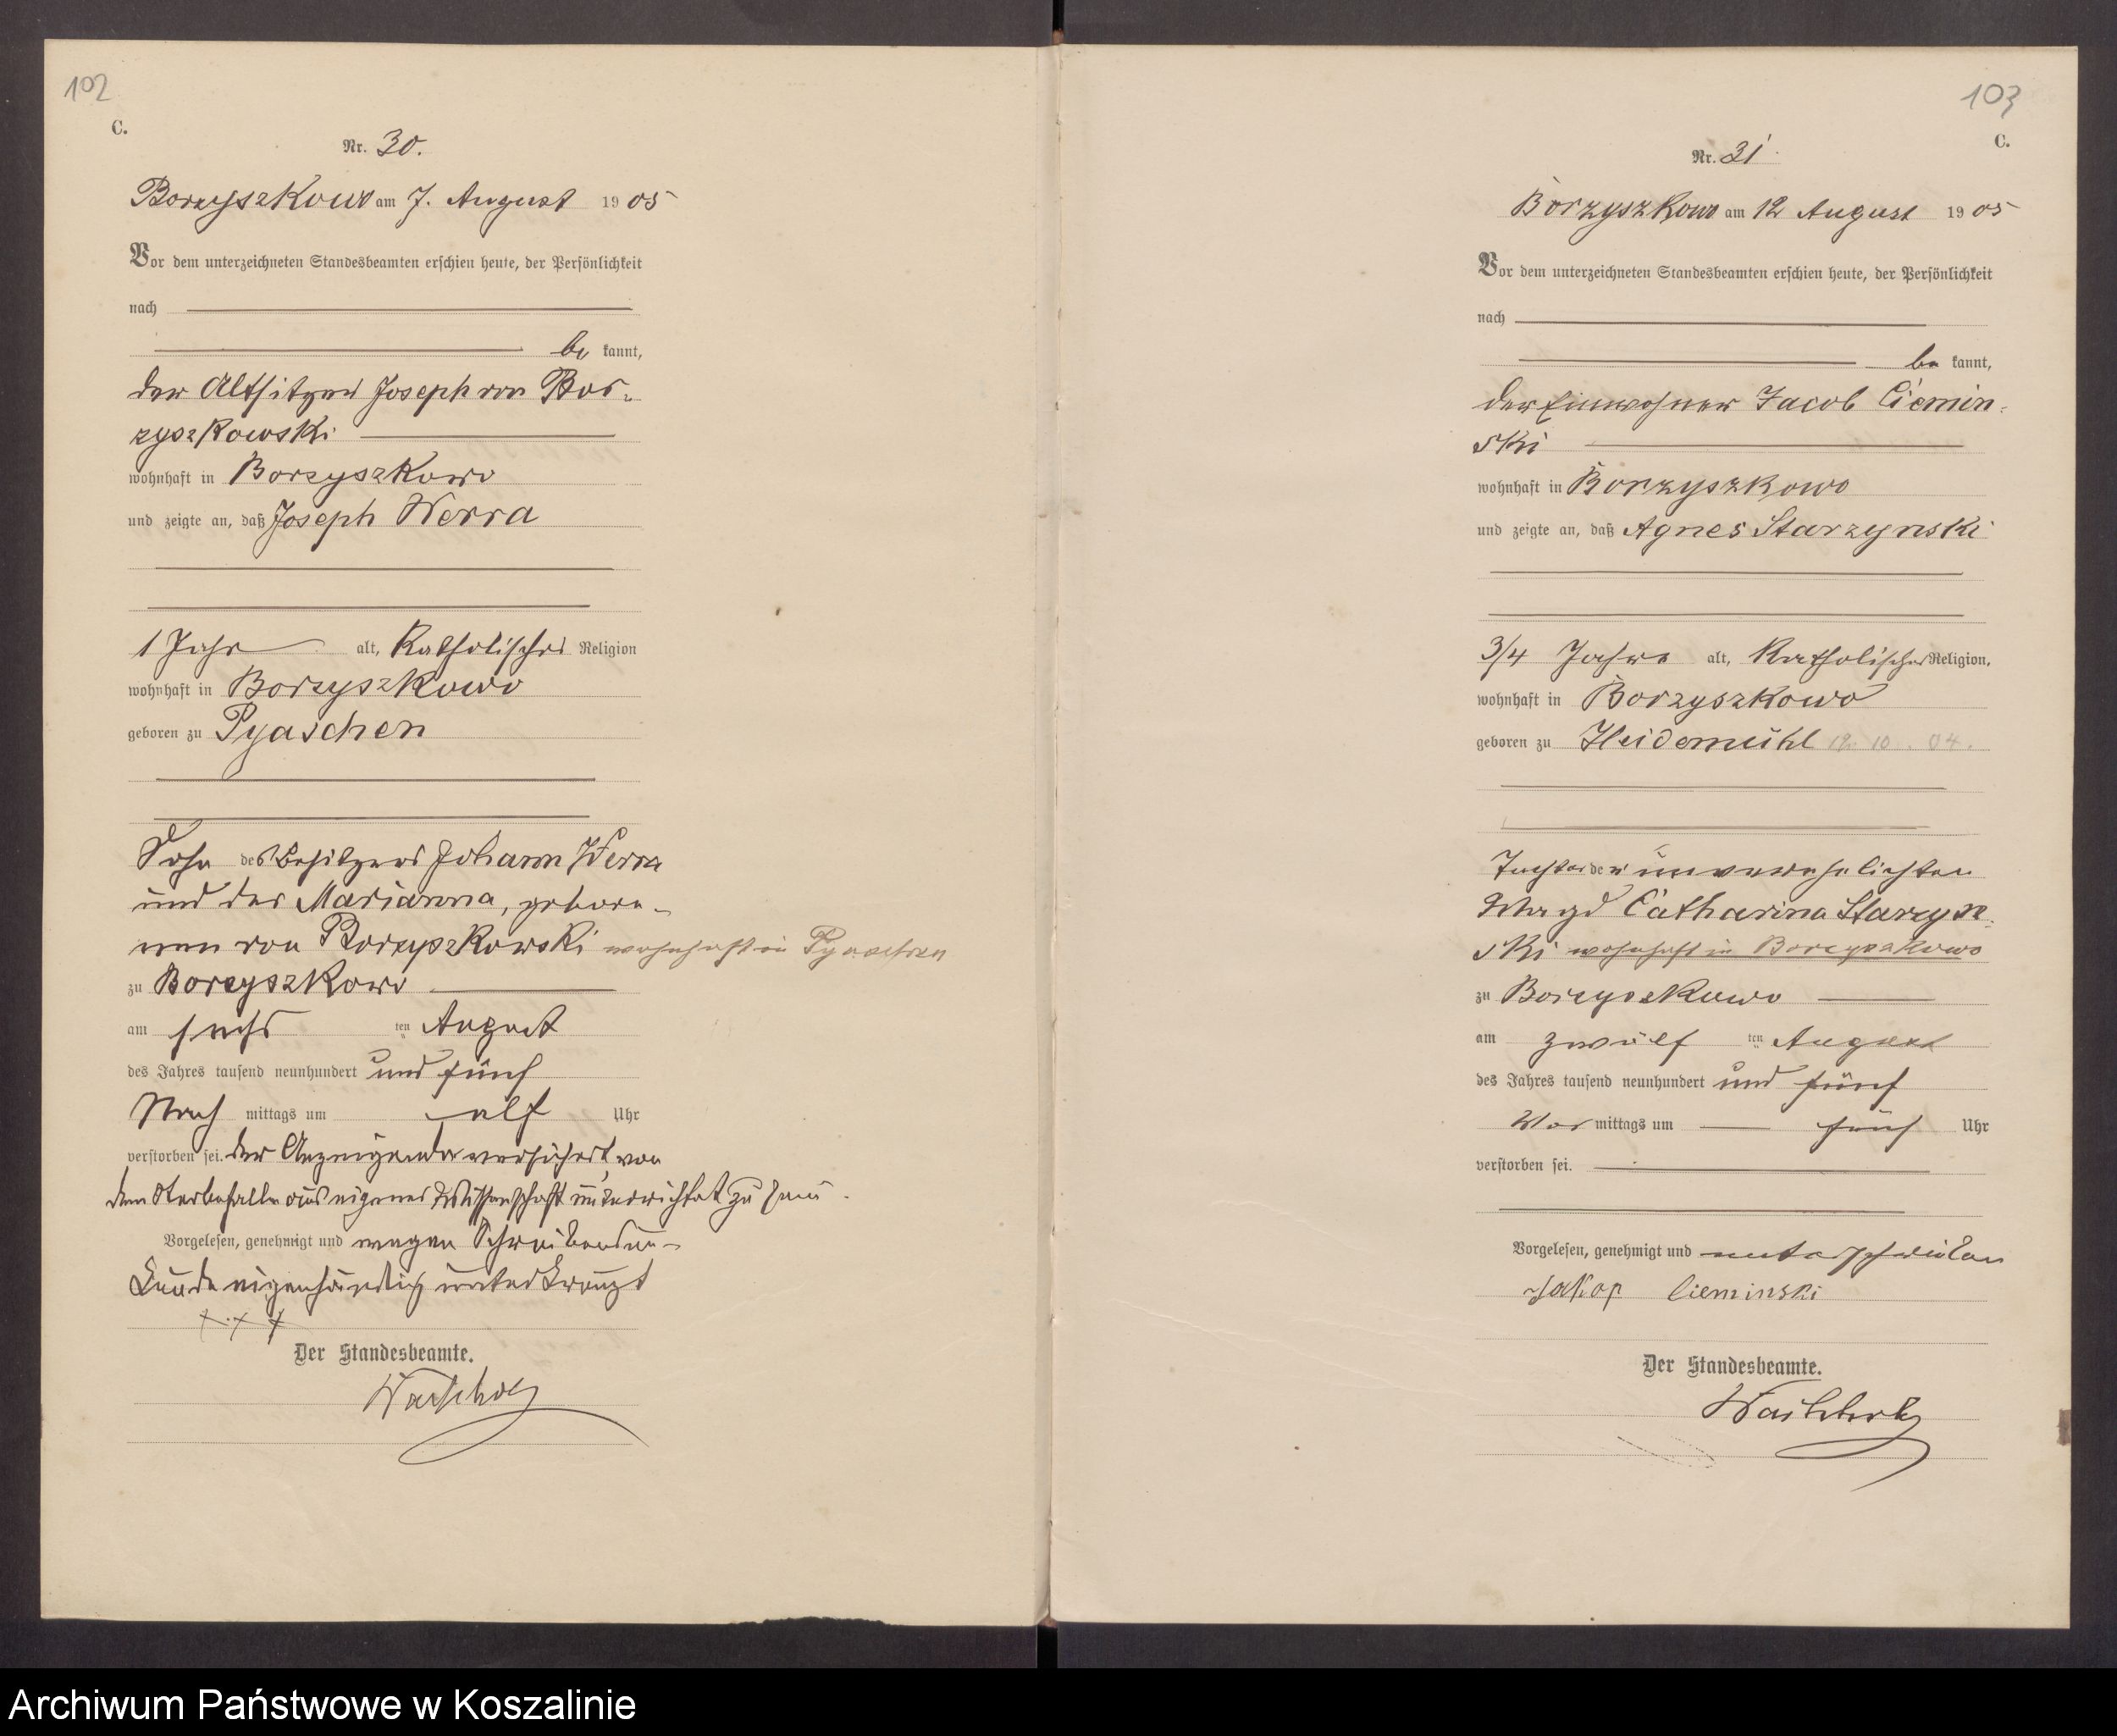 102
C.
Nr. 30.
Borzyszkowo am 7. August 1905
Vor dem unterzeichneten Standesbeamten erschien heute, der Persönlichkeit
nach
be kannt,
der Altsitzer Joseph von Bor-
zyszkowski
wohnhaft in Borzyszkowo
und zeigte an, daß Joseph Werra
1 Jahr alt, Katholischer Religion
wohnhaft in Borzyszkowo
geboren zu Pyaschen
Sohn des Besitzers Johann Werra
und der Marianna, gebore-
nen von Borzyszkowski wohnhaft in Pyaschen
zu Borzyszkowo
am sechs ten August
des Jahres tausend neunhundert und fünf
Nach mittags um elf Uhr
verstorben sei. der Anzeigende versichert von
dem Sterbefalle aus eigener Wissenschaft unterrichtet zu sein.
Vorgelesen, genehmigt und wegen Schreibensun-
kunde eigenhändig unterkreuzt
+ + +
Der Standesbeamte.
103
C.
Nr. 31
Borzyszkowo am 12 August 1905
Vor dem unterzeichneten Standesbeamten erschien heute, der Persönlichkeit
nach
be kannt,
der Einwohner Jacob Ciemin-
ski
wohnhaft in Borzyszkowo
und zeigte an, daß Agnes Starzynski
3/4 Jahre alt, Katholischer Religion,
wohnhaft in Borzyszkowo
geboren zu Heidemühl 10. 04.
Tochter der unverehelichten
Magd Catharina Starzyn-
ski wohnhaft in Borzyszkowo
zu Borzyszkowo
am zwölf ten August
des Jahres tausend neunhundert und fünf
Vor mittags um fünf Uhr
verstorben sei.
Vorgelesen, genehmigt und unterschrieben
Jakop Cieminski
Der Standesbeamte.
Archiwum Państwowe w Koszalinie